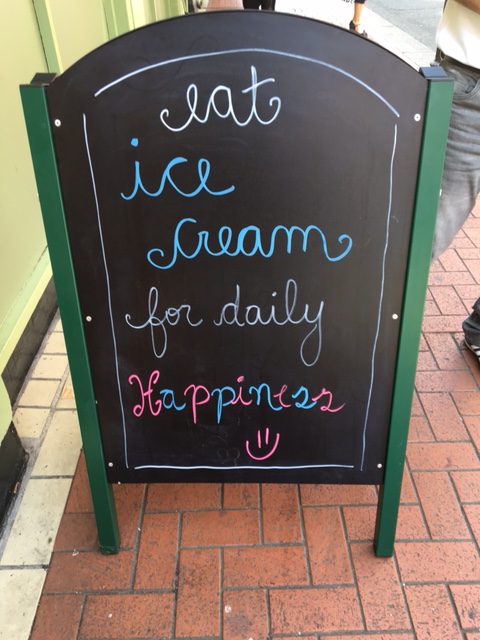 eat
ice
cream
for daily
Happiness